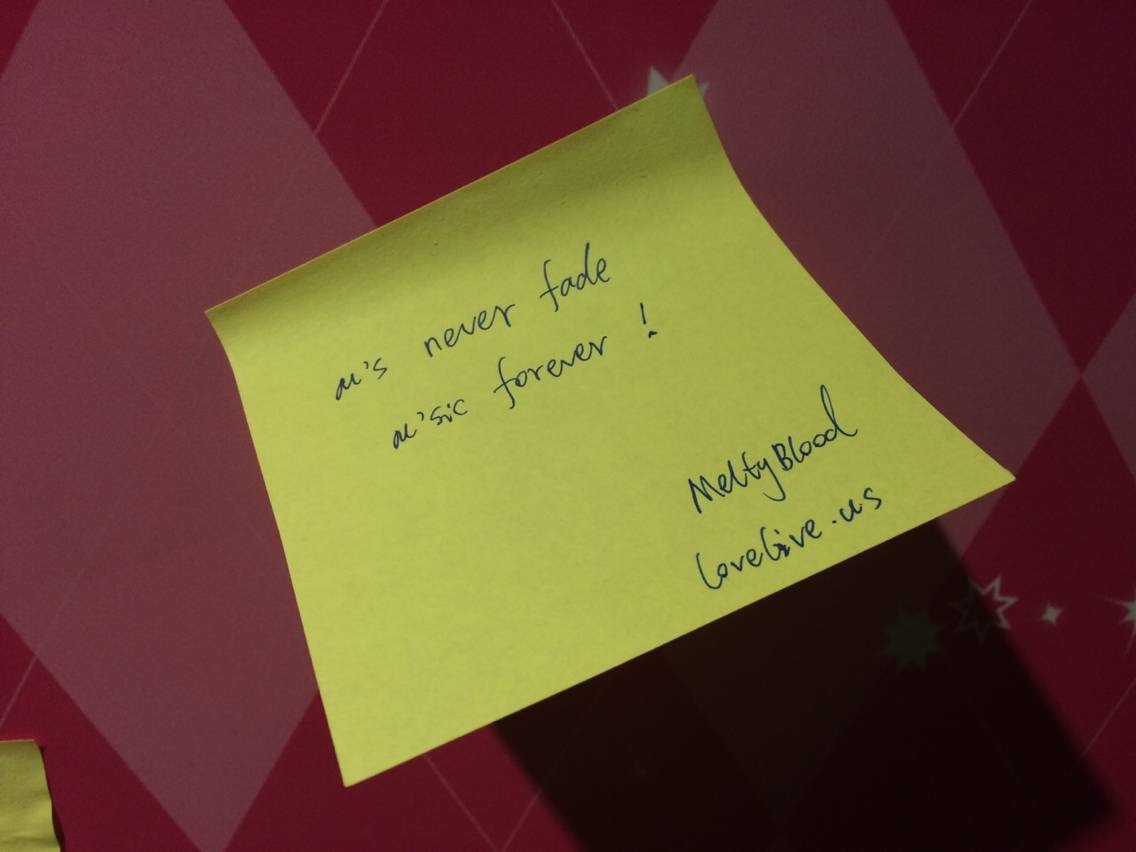 μ's never fade
μ'sic forever !
MeltyBlood
lovelive.us